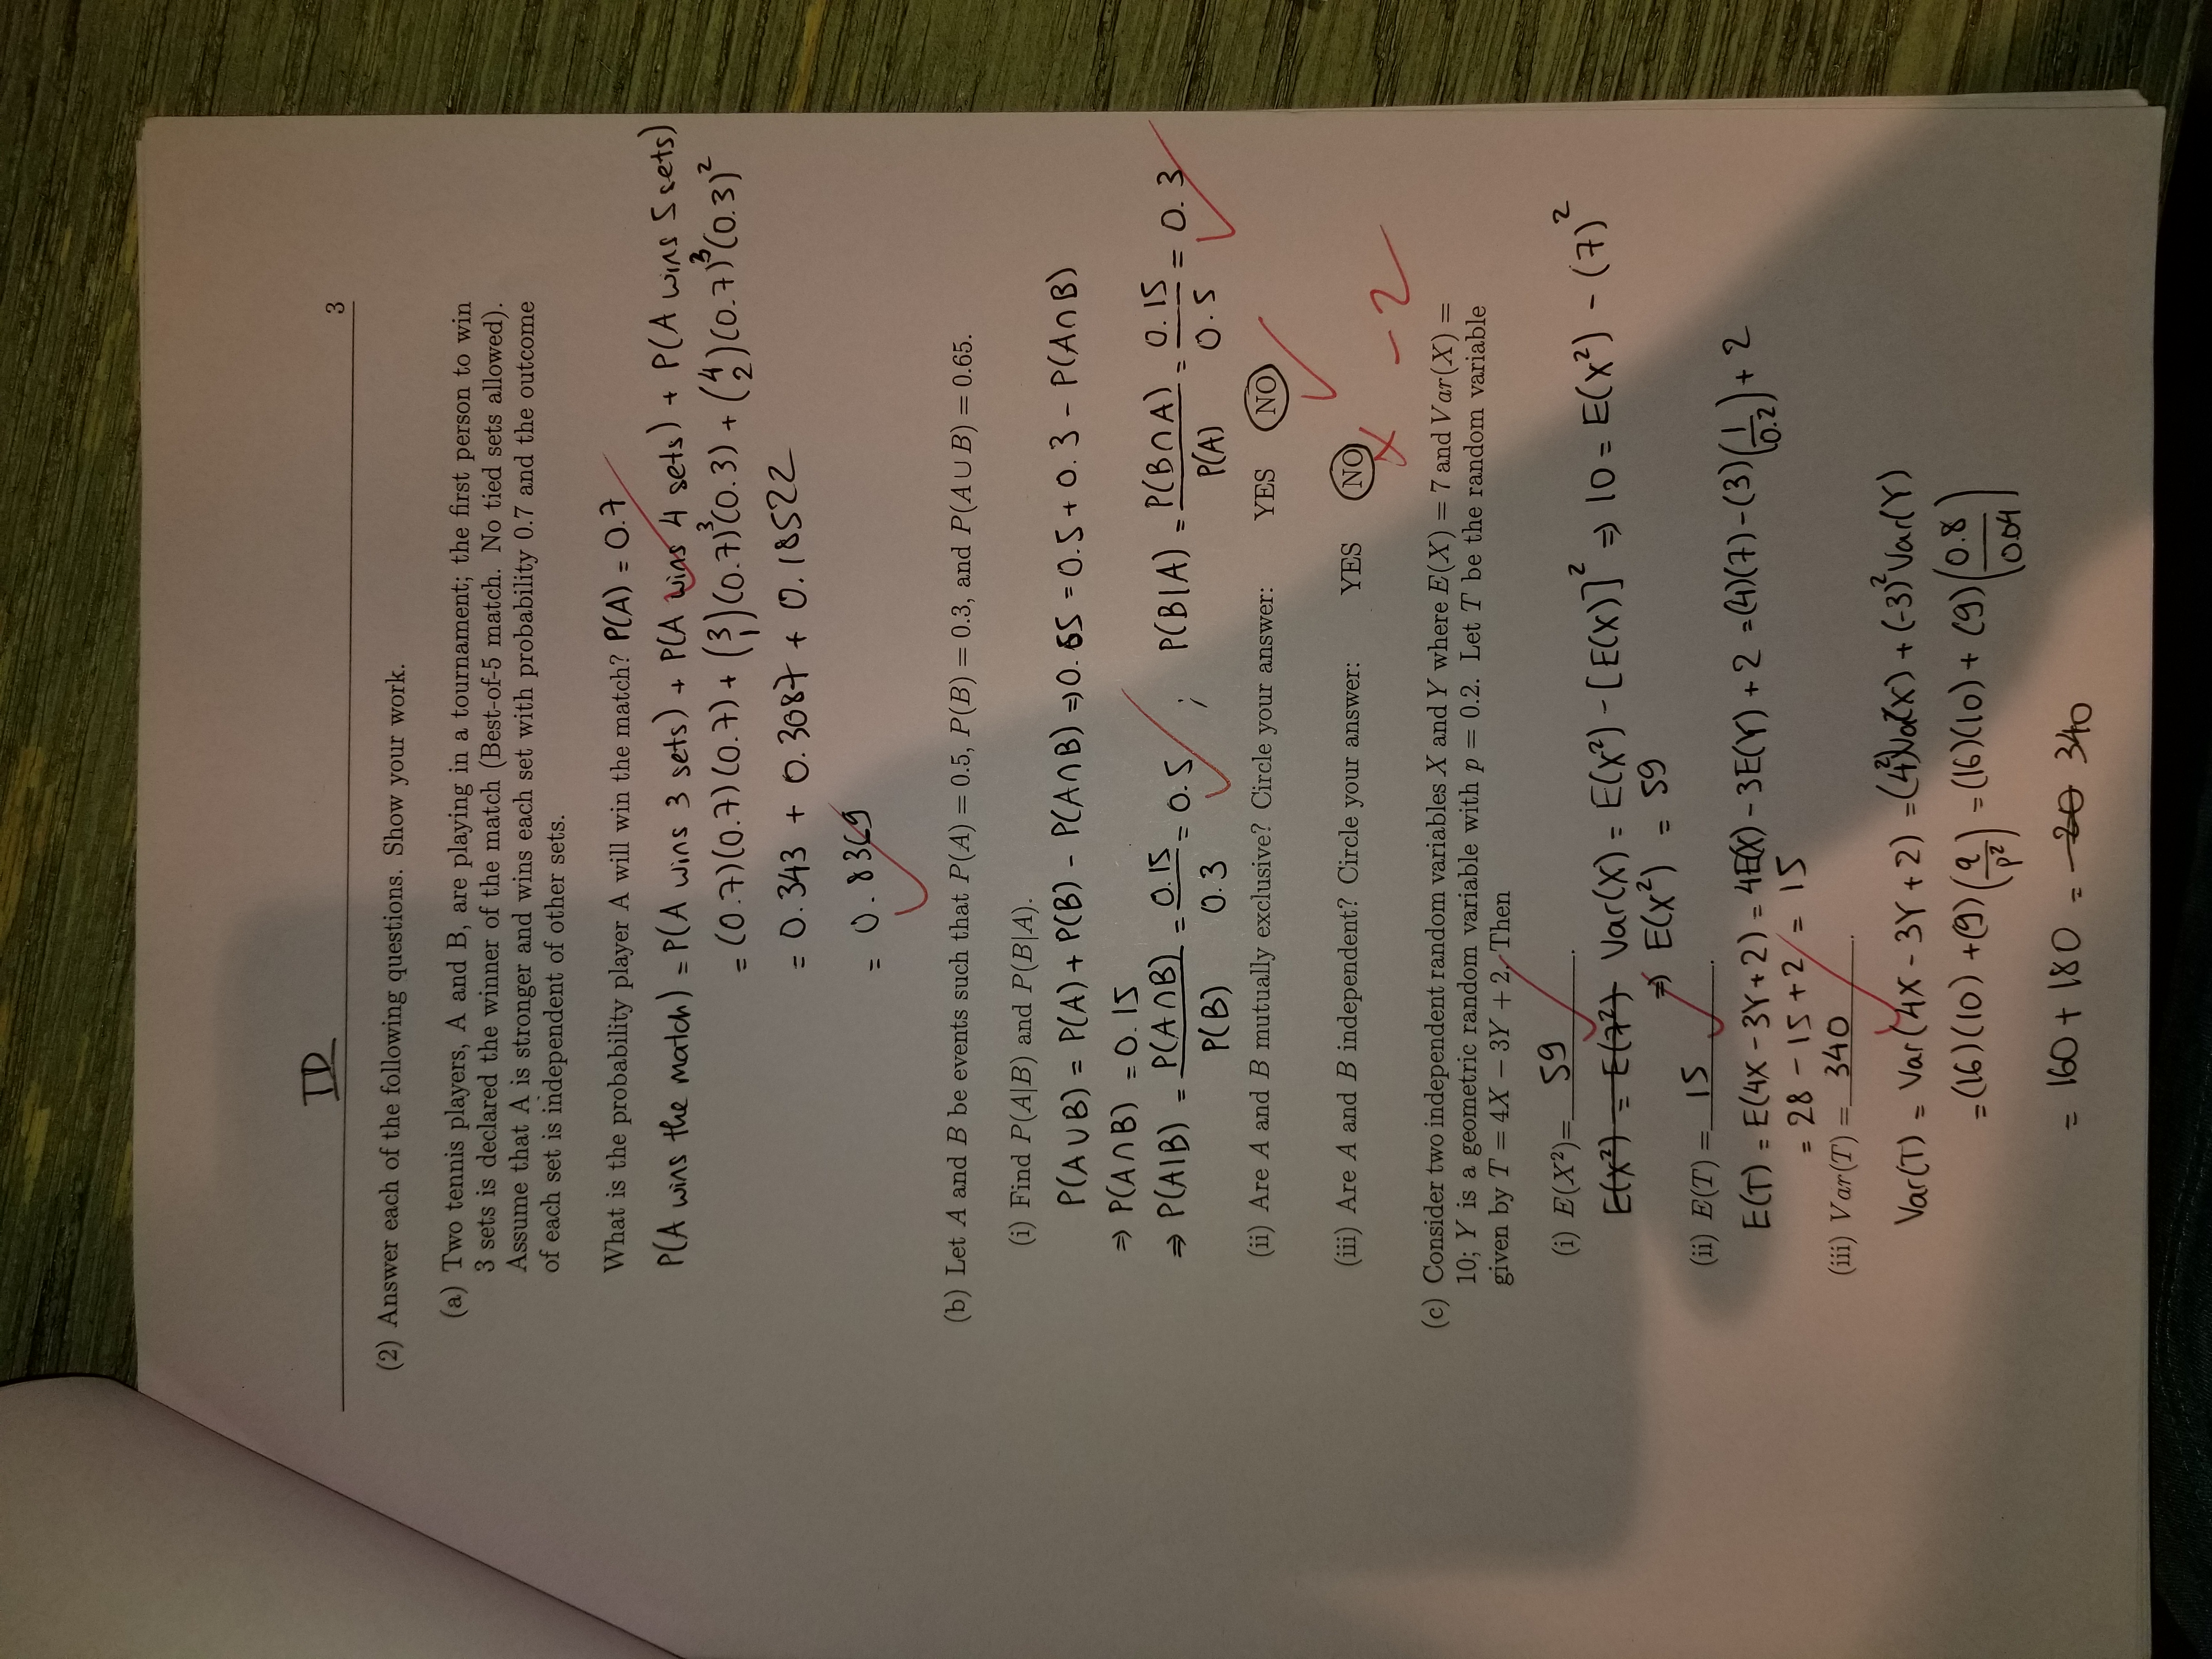 TD
3
(2) Answer each of the following questions. Show your work.
(a) Two tennis players, A and B, are playing in a tournament; the first person to win
3 sets is declared the winner of the match (Best-of-5 match. No tied sets allowed).
Assume that A is stronger and wins each set with probability 0.7 and the outcome
of each set is independent of other sets.
What is the probability player A will win the match? P(A) = 0.7
P(A wins the match) = P(A wins 3 sets) + P(A wins 4 sets) + P(A wins 5 sets)
= (0.7)(0.7)(0.7) + (3 1)(0.7)³(0.3) + (4 2)(0.7)³(0.3)²
= 0.343 + 0.3087 + 0.18522
= 0.8369
(b) Let A and B be events such that P(A) = 0.5, P(B) = 0.3, and P(A ∪ B) = 0.65.
(i) Find P(A|B) and P(B|A).
P(A∪B) = P(A) + P(B) - P(A∩B) ⇒ 0.65 = 0.5 + 0.3 - P(A∩B)
⇒ P(A∩B) = 0.15
⇒ P(A|B) = P(A∩B)/P(B) = 0.15/0.3 = 0.5 ; P(B|A) = P(B∩A)/P(A) = 0.15/0.5 = 0.3
(ii) Are A and B mutually exclusive? Circle your answer: YES NO
(iii) Are A and B independent? Circle your answer: YES NO
-2
(c) Consider two independent random variables X and Y where E(X) = 7 and Var(X) =
10; Y is a geometric random variable with p = 0.2. Let T be the random variable
given by T = 4X − 3Y + 2, Then
(i) E(X²)= 59.
E(X²) = E(7²) Var(X) = E(X²) - [E(X)]² ⇒ 10 = E(X²) - (7)²
⇒ E(X²) = 59
(ii) E(T) = 15.
E(T) = E(4X - 3Y + 2) = 4E(X) - 3E(Y) + 2 = (4)(7) - (3)(1/0.2) + 2
= 28 - 15 + 2 = 15
(iii) Var(T) = 340.
Var(T) = Var(4X - 3Y + 2) = (4²)Var(X) + (-3)² Var(Y)
= (16)(10) + (9)(q/p²) = (16)(10) + (9)(0.8/0.04)
= 160 + 180 = 340